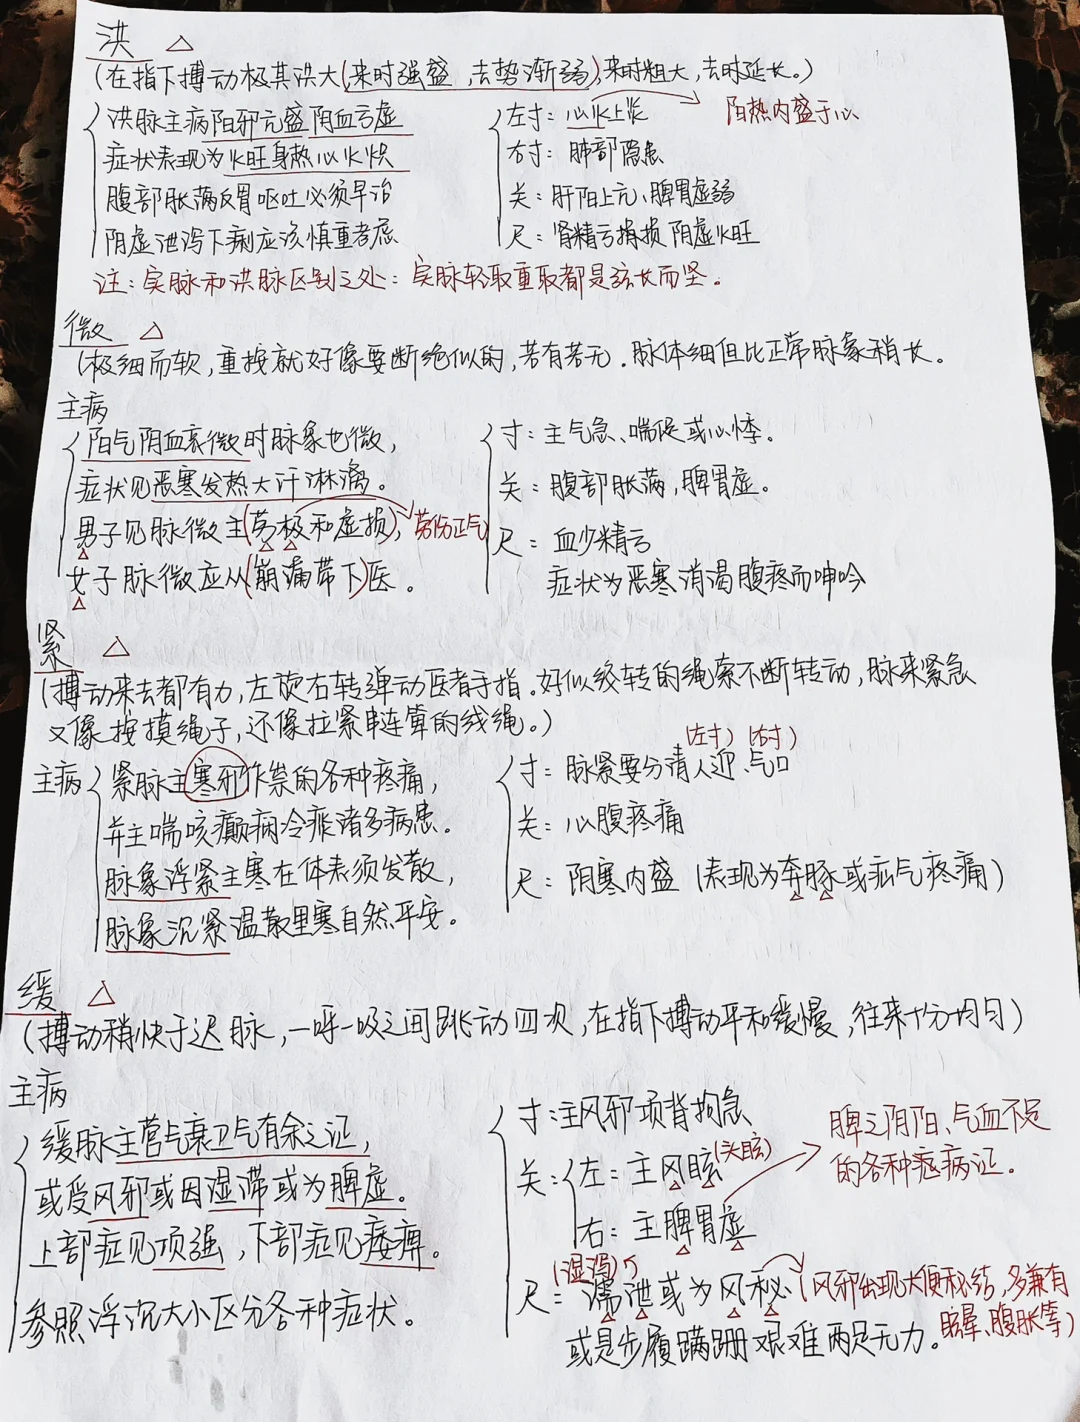 洪 △
(在指下搏动极其洪大(来时强盛,去势渐弱),来时粗大,去时延长。)
洪脉主病阳邪亢盛阴血亏虚
症状表现为火旺身热心火炽
腹部胀满反胃呕吐必须早治
阴虚泄泻下痢应该慎重考虑
左寸:心火上炎
阳热内盛于心
右寸:肺部隐患
关:肝阳上亢、脾胃虚弱
尺:肾精亏损损 阴虚火旺
注:实脉和洪脉区别之处:实脉轻取重取都是弦长而坚。
微 △
(极细而软,重按就好像要断绝似的,若有若无.脉体细但比正常脉象稍长。
主病
阳气阴血衰微时脉象也微,
症状见恶寒发热大汗淋漓。
男子见脉微主(劳极和虚损),劳伤正气
女子脉微应从(崩漏带下)医。
寸:主气急、喘促或心悸。
关:腹部胀满,脾胃虚。
尺:血少精亏
症状为恶寒消渴腹疼而呻吟
紧 △
(搏动来去都有力,左旋右转弹动医者手指.好似绞转的绳索不断转动,脉来紧急
又像按摸绳子,还像拉紧串连箅的线绳。)
主病
紧脉主寒邪作祟的各种疼痛,
并主喘咳癫痫冷痰诸多病患.
脉象浮紧主寒在体表须发散,
脉象沉紧温散里寒自然平安。
(左寸) (右寸)
寸:脉紧要分清人迎、气口
关:心腹疼痛
尺:阴寒内盛 (表现为奔豚或疝气疼痛)
缓 △
(搏动稍快于迟脉,一呼一吸之间跳动四次,在指下搏动平和缓慢,往来十分均匀)
主病
缓脉主营气衰卫气有余之证,
或受风邪或因湿滞或为脾虚.
上部症见项强,下部症见痿痹。
参照浮沉大小区分各种症状。
寸:主风邪项背拘急
关:左:主风眩(头眩)
右:主脾胃虚
脾之阴阳、气血不足
的各种虚病证.
(湿泻)
尺:濡泄或为风秘(风邪出现大便秘结,多兼有
眩晕、腹胀等)
或是步履蹒跚艰难两足无力。